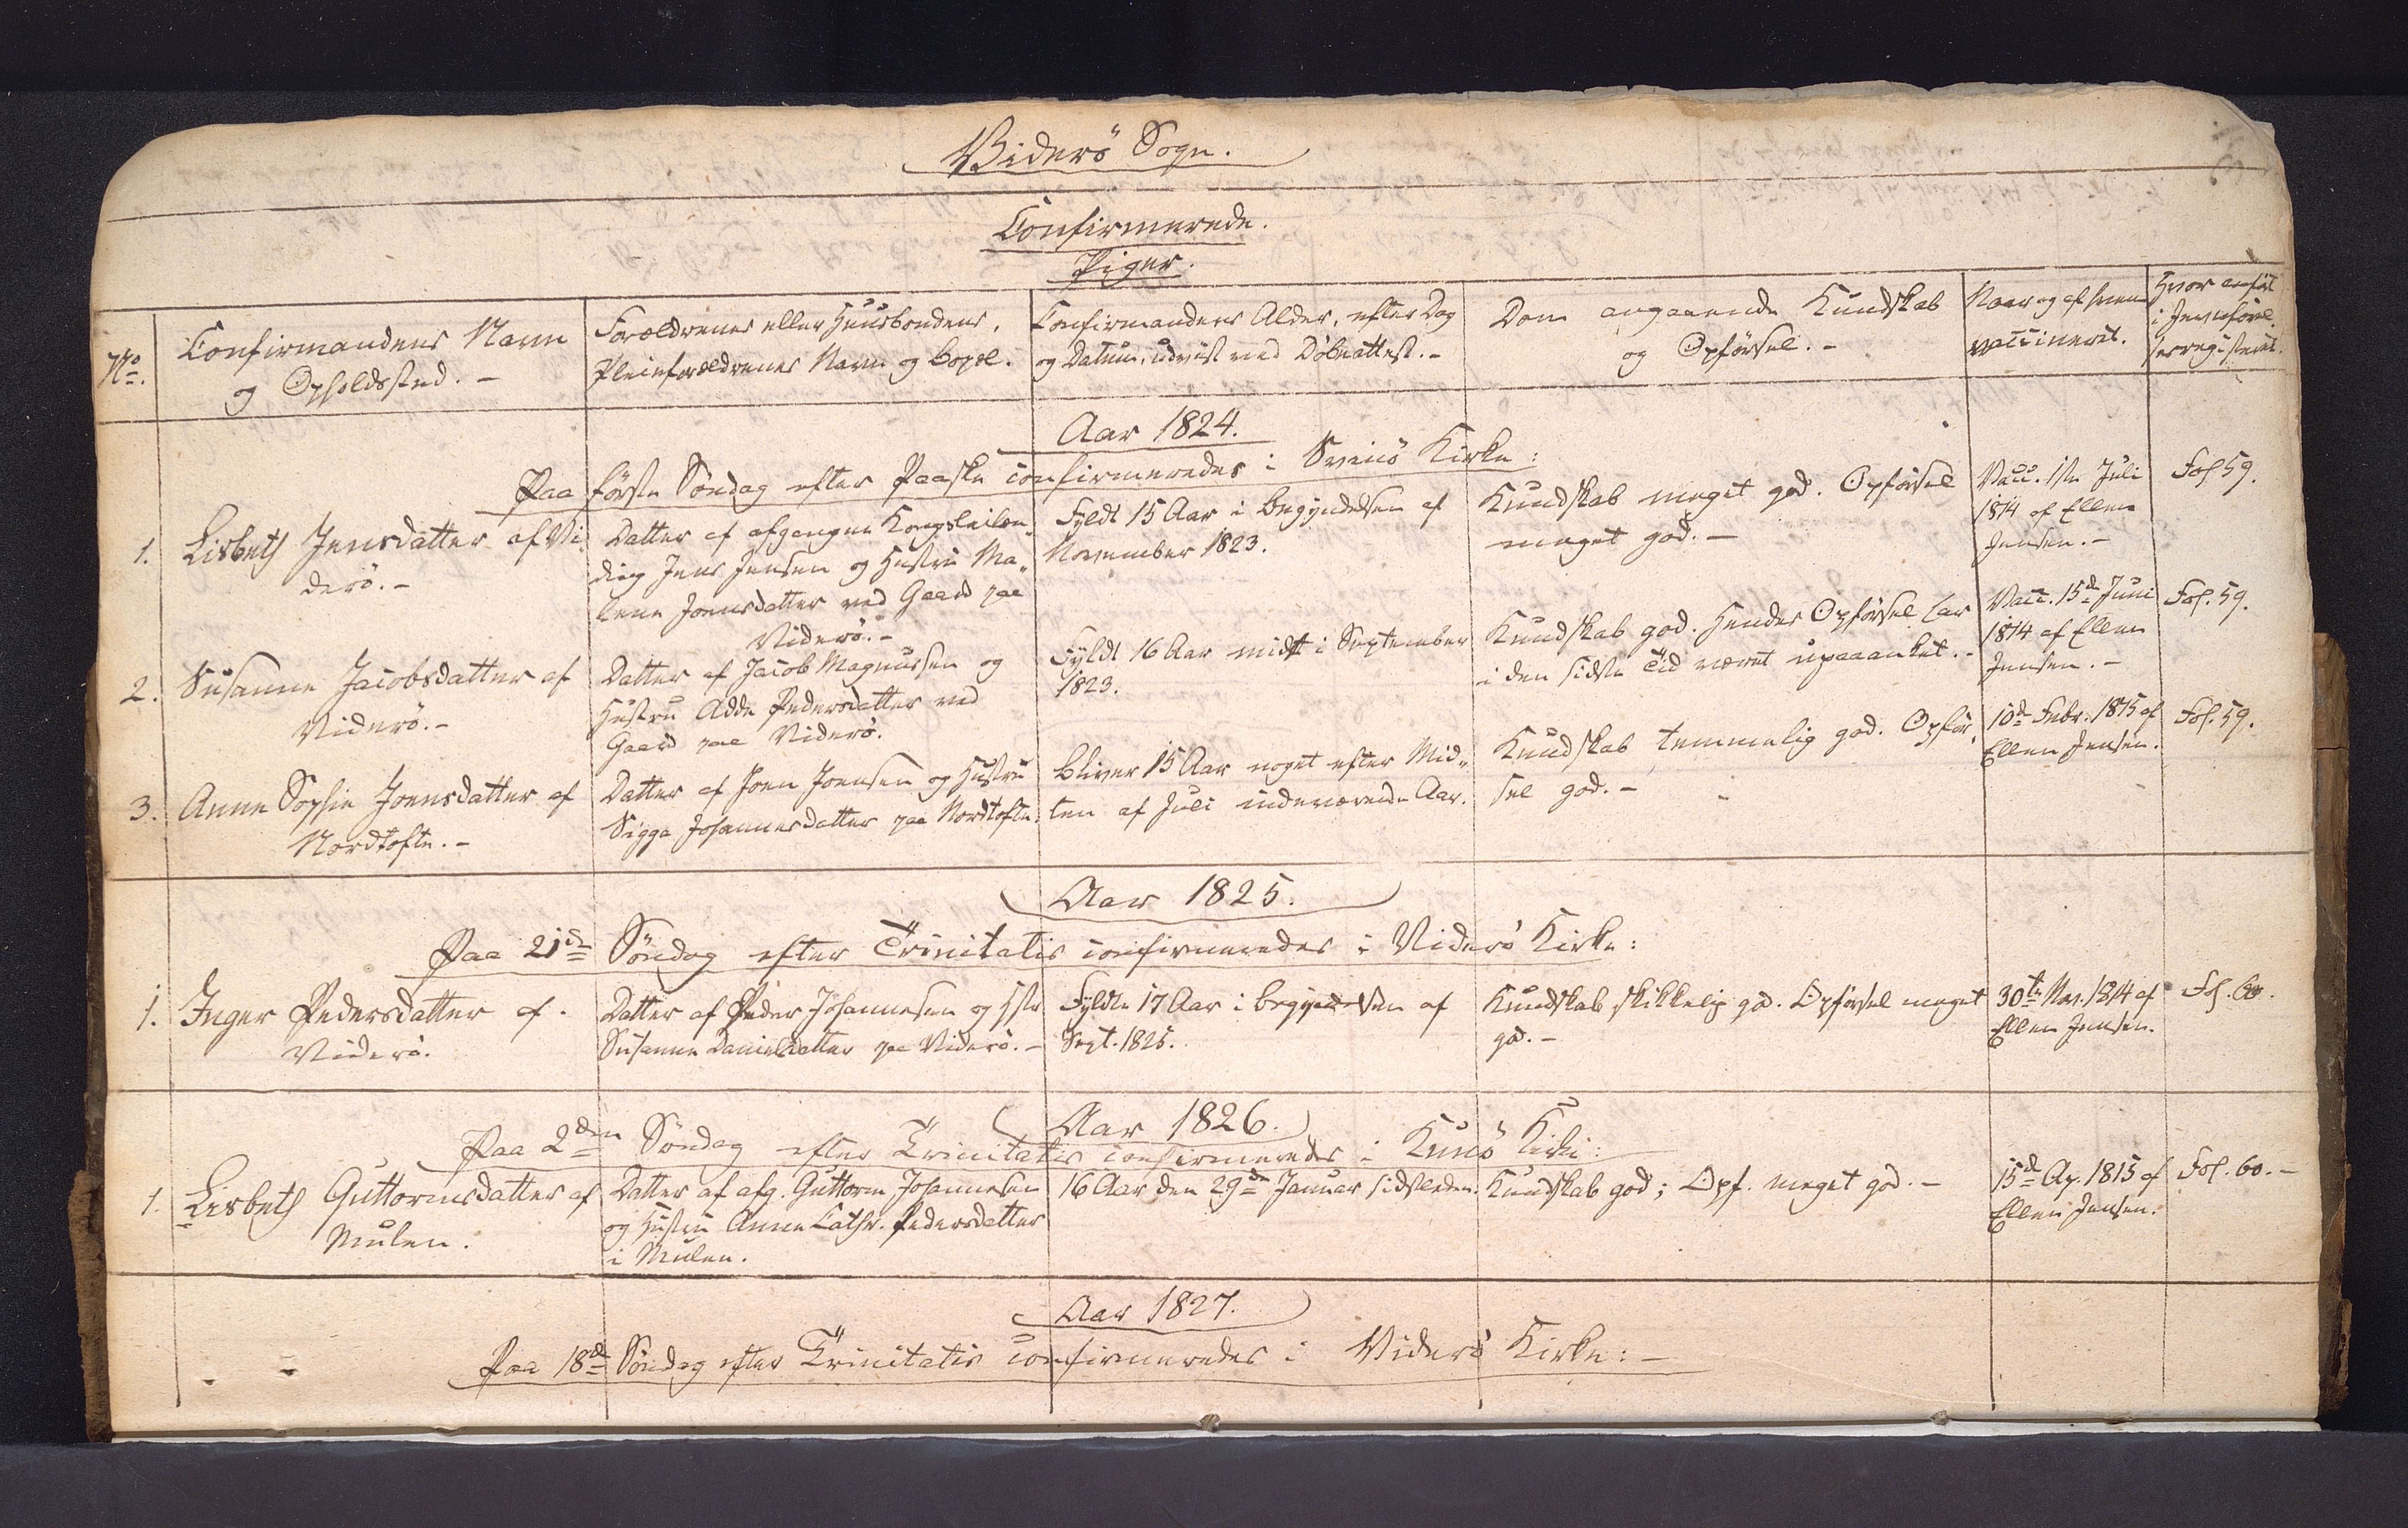 Viderö Sogn.
Confirmerede.
Piger.
No.
Confirmandens Navn
og Opholdssted. -
Forældrenes eller Huusbondens,
Pleieforældrenes Navn og Bopæl.
Confirmandens Alder, efter Dag
og Datum, udvist ved Döbeattest. -
Dom angaaende Kundskab
og Opförsel. -
Naar og af hvem
vaccineret.
Hvor anfört
i Jevnförel-
sesregisteret.
Aar 1824.
Paa förste Söndag efter Paaske confirmeredes i Svinö Kirke:
1.
Lisbeth Jensdatter af Vi-
derö. -
Datter af afgangne Kongsleilæn-
ding Jens Jensen og Hustru Ma-
lene Joensdatter ved Gaard paa
Viderö. -
Fyldt 15 Aar i Begyndelsen af
November 1823.
Kundskab meget god. Opförsel
meget god. -
Vacc. 1ste Juli
1814 af Ellen
Jensen. -
Fol 59.
2.
Susanne Jacobsdatter af
Viderö. -
Datter af Jacob Magnussen og
Hustru Adde Pedersdatter ved
Gaard paa Viderö.
Fyldt 16 Aar midt i September
1823.
Kundskab god. Hendes Opförsel har
i den sidste Tid været upaaanket. -
Vacc. 15de Juni
1814 af Ellen
Jensen. -
Fol. 59.
3.
Anne Sophie Joensdatter af
Nordtofte. -
Datter af Joen Joensen og Hustru
Sigga Johannesdatter paa Nordtofte.
Bliver 15 Aar noget efter Mid-
ten af Juli indeværende Aar.
Kundskab temmelig god. Opför-
sel god. -
10de Febr. 1815 af
Ellen Jensen.
Fol. 59.
Aar 1825.
Paa 21de Söndag efter Trinitatis confirmeredes i Viderö Kirke:
1.
Inger Pedersdatter af
Viderö.
Datter af Peder Johannesen og Hstr
Susanne Danielsdatter paa Viderö. -
Fyldte 17 Aar i Begyndelsen af
Sept. 1825.
Kundskab skikkelig god. Opförsel meget
god. -
30te Nov. 1814 af
Ellen Jensen.
Fol. 60.
Aar 1826.
Paa 2den Söndag efter Trinitatis confirmeredes i Kunö Kirke:
1.
Lisbeth Guttormsdatter af
Mulen.
Datter af afg. Guttorm Johannesen
og Hustru Anne Cathr. Pedersdatter
i Mulen.
16 Aar den 29de Januar sidstleden.
Kundskab god; Opf. meget god. -
15de Ap. 1815 af
Ellen Jensen.
Fol. 60. -
Aar 1827.
Paa 18de Söndag efter Trinitatis confirmeredes i Viderö Kirke: -